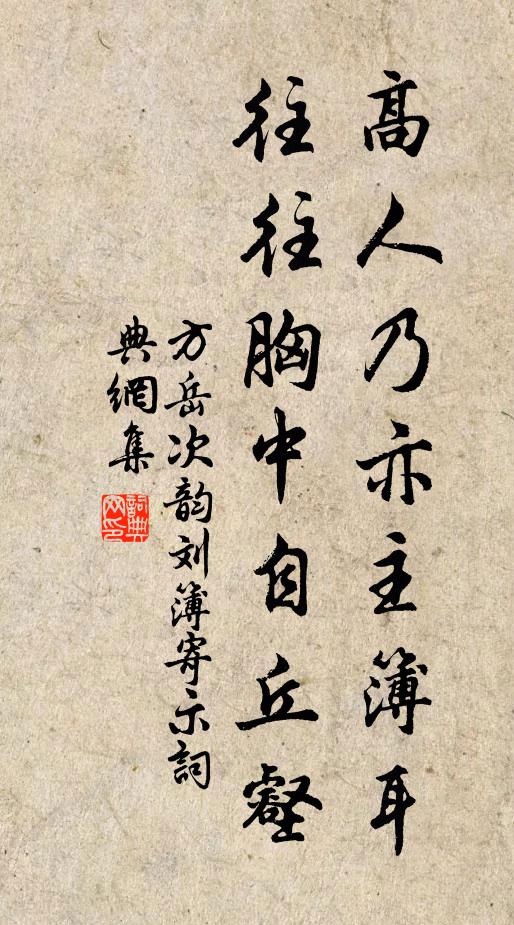 高人乃亦主簿耳
往往胸中自丘壑
方岳次韵刘簿寄示詞
典網集
詞典网印